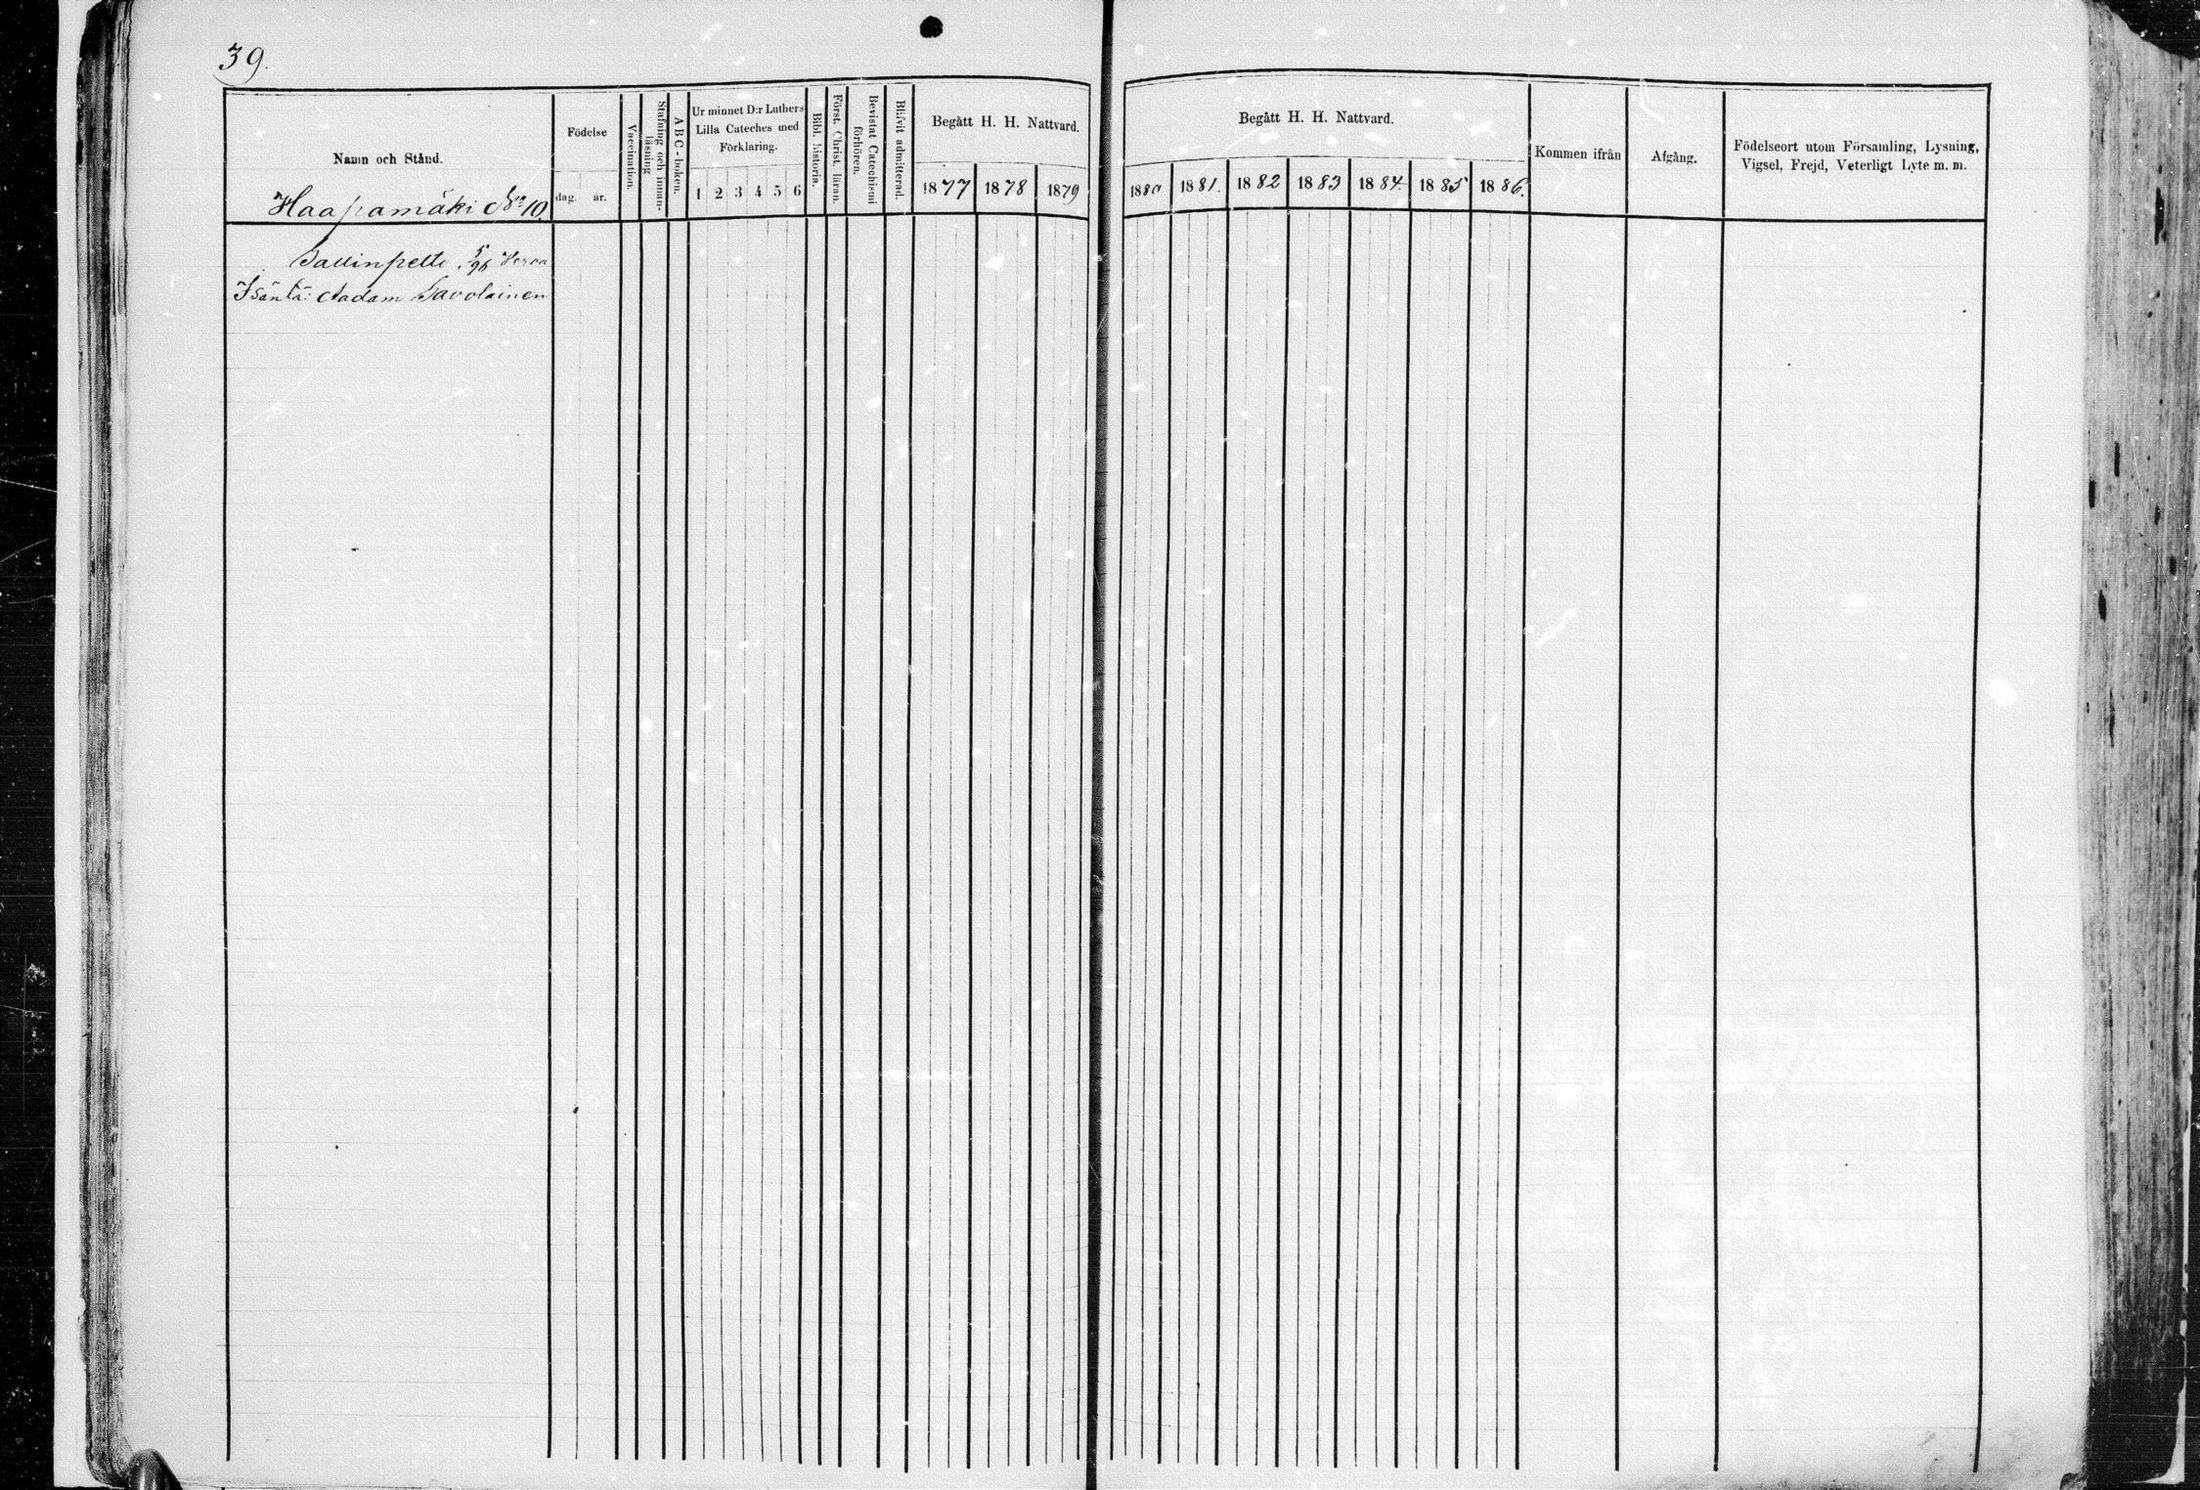 39.
Namn och Stånd.
Haapamäki No 10.
Födelse
dag. år.
Vaccination.
Stafning och innan-
läsning
A B C - boken.
Ur minnet D:r Luthers
Lilla Cateches med
Förklaring.
1 2 3 4 5 6
Bibl. historia.
Först. Christ. läran.
Bevistat Catechismi
förhören.
Blifvit admitterad.
Begått H. H. Nattvard.
1877 1878 1879
Begått H. H. Nattvard.
1880 1881. 1882 1883 1884 1885 1886.
Kommen ifrån
Afgång.
Födelseort utom Församling, Lysning,
Vigsel, Frejd, Veterligt Lyte m. m.
5/96
Isäntä: Aadam Savolainen